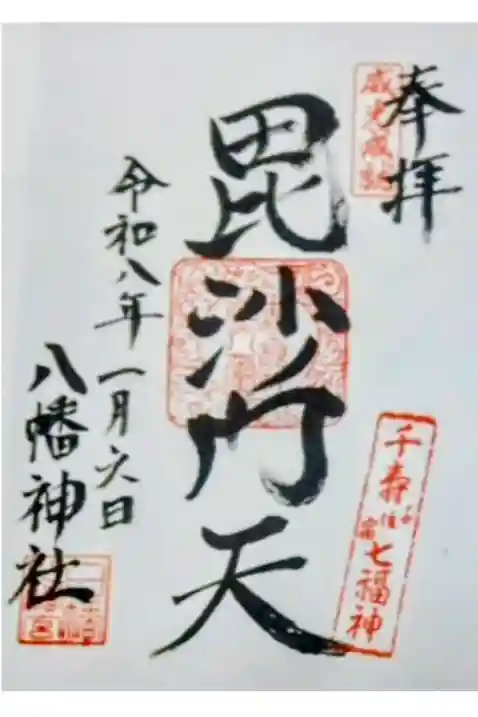 奉拝
毘沙門天
千寿七福神
令和八年一月六日
八幡神社